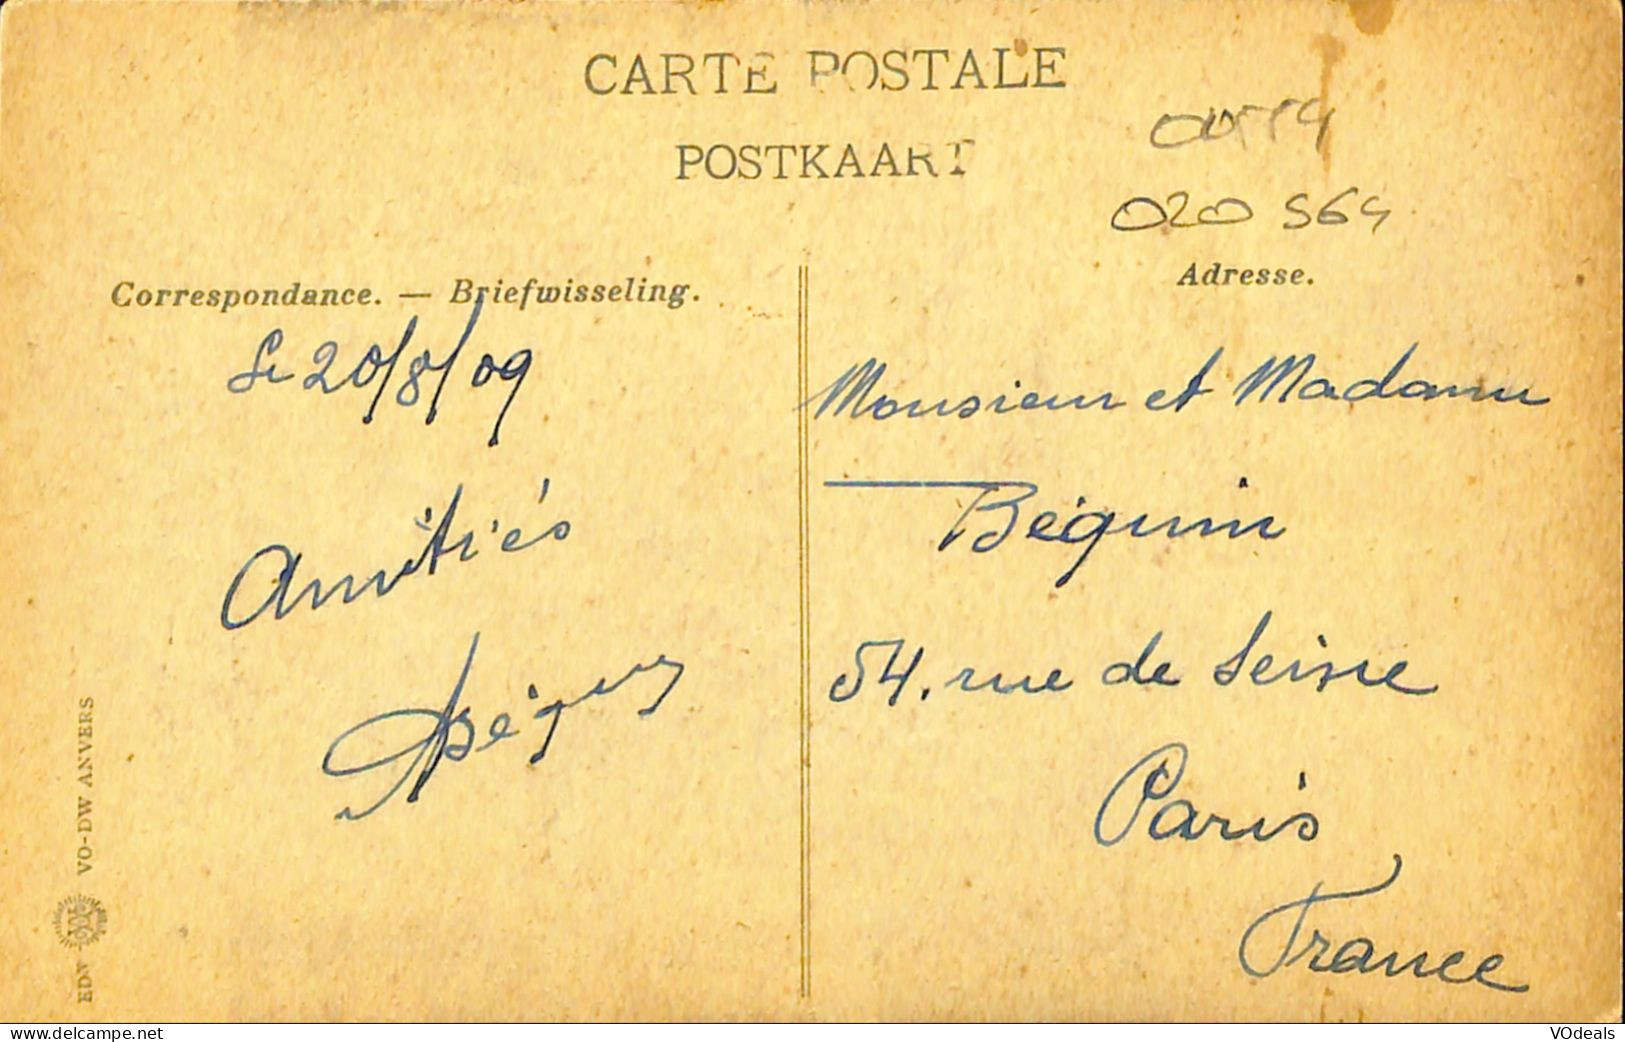 CARTE POSTALE
POSTKAART
020 564
Correspondance. — Briefwisseling.
Le 20/8/09
Amitiés
Adresse.
Monsieur et Madame
Béguin
54, rue de Seine
Paris
France
EDN VO-DW ANVERS
delcampe.net
VOdeals